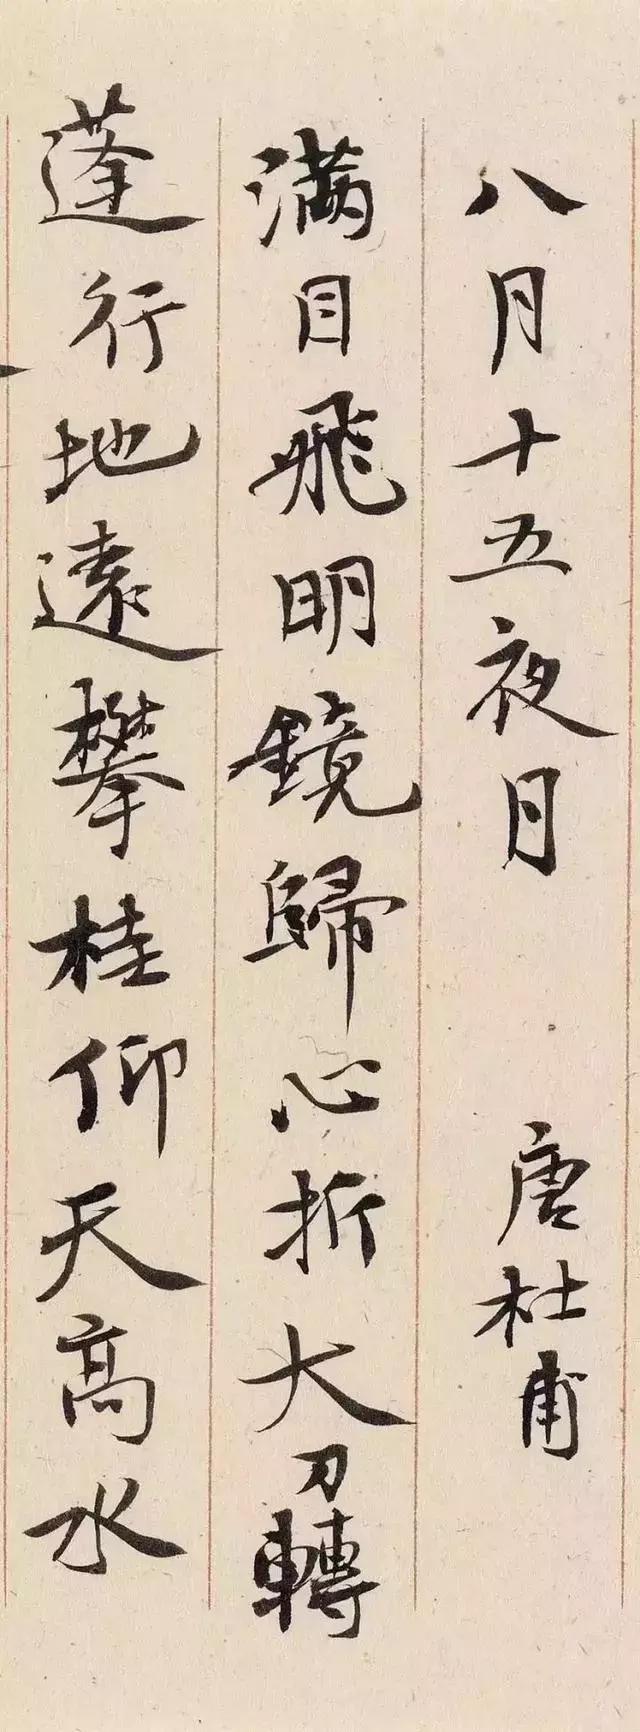 八月十五夜月 唐杜甫
满目飛明鏡歸心折大刀轉
蓬行地遠攀桂仰天高水